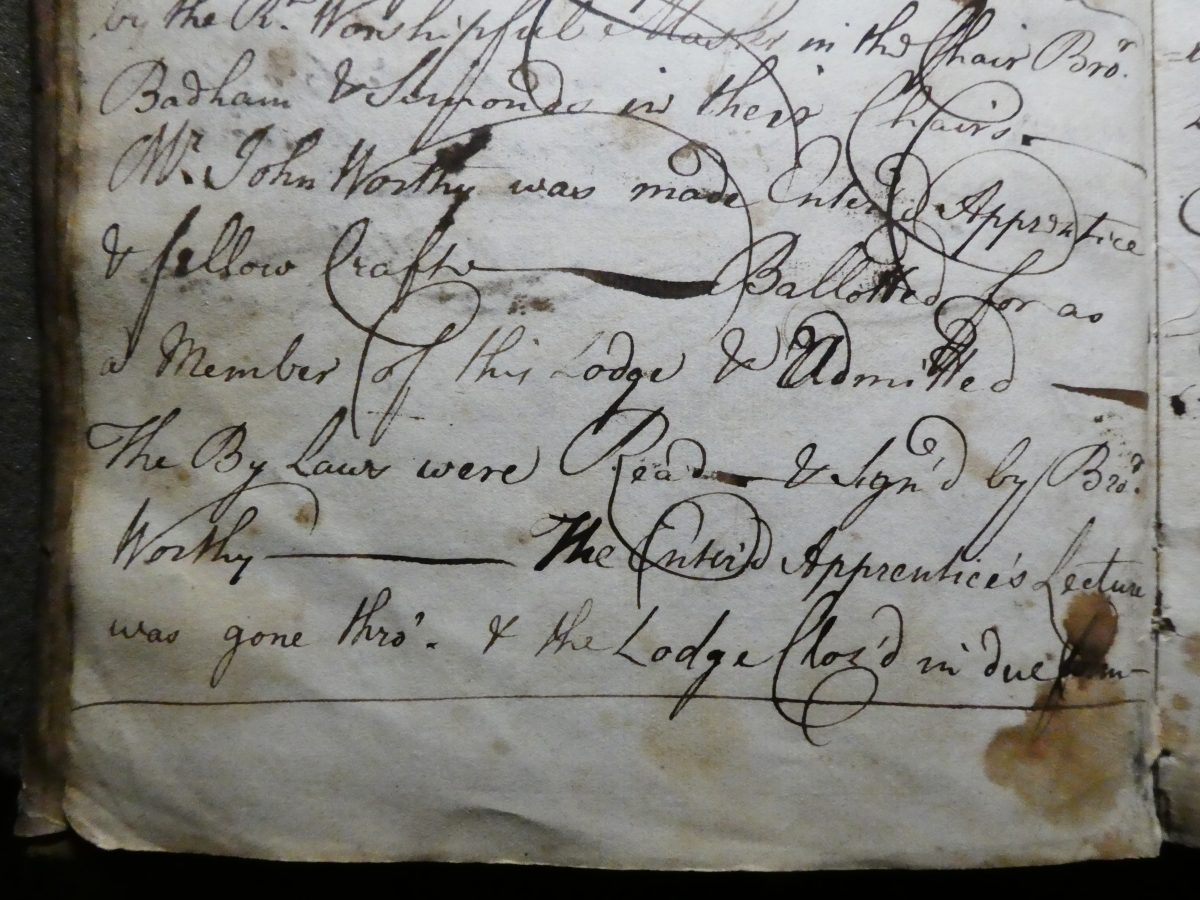 by the Rt. Worshipful Master in the Chair Bro.r
Badham & Simonds in their Chairs
Mr. John Worthy was made Enter'd Apprentice
& fellow Crafte Ballotted for as
a Member of this Lodge & Admitted
The By Laws were Read & Sign'd by Bro.r
Worthy The Enter'd Apprentice's Lecture
was gone thro'. & the Lodge Clos'd in due form